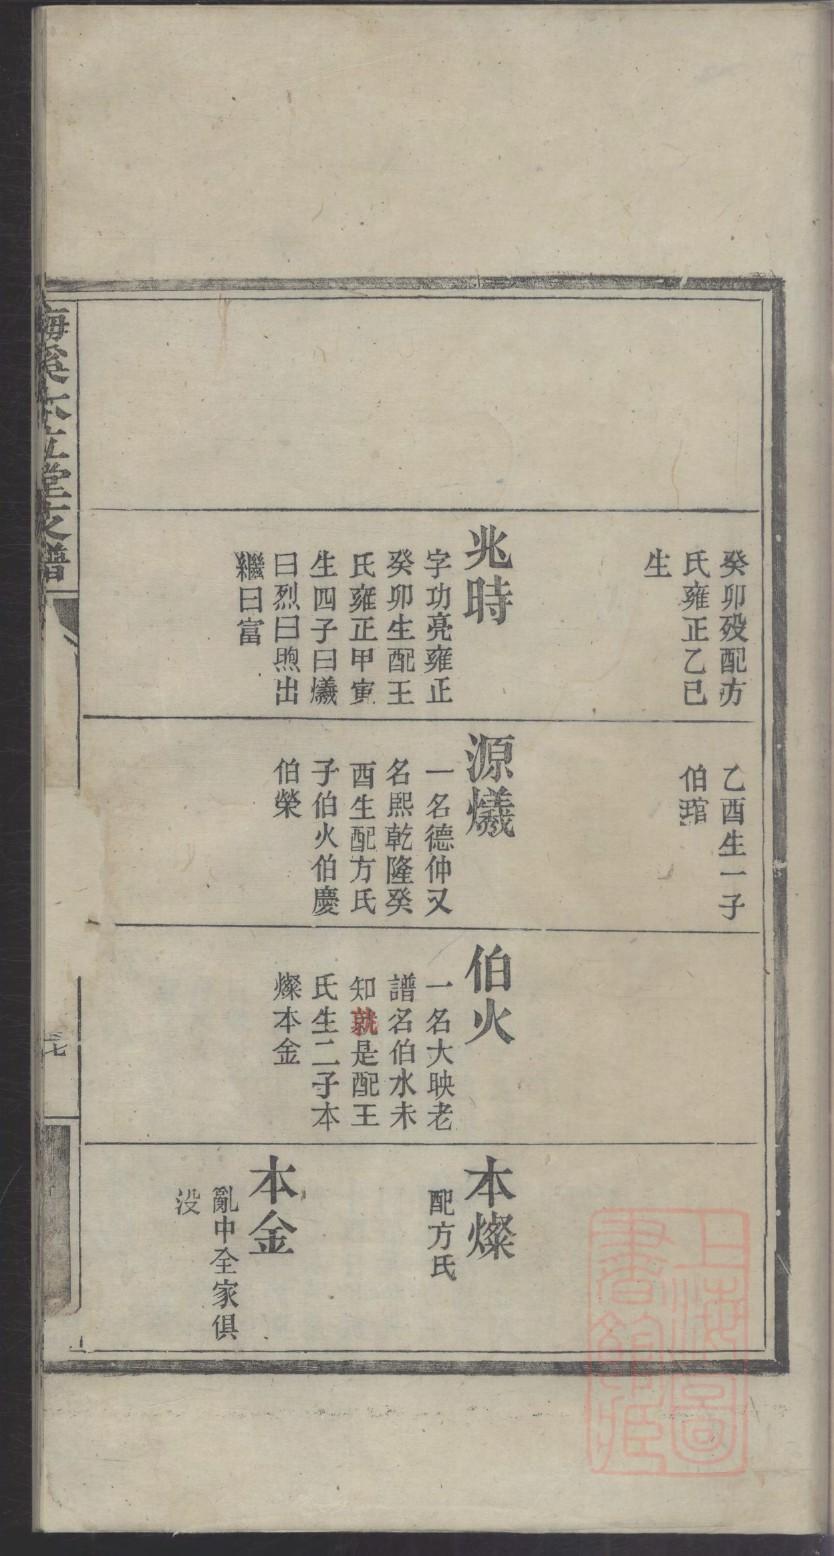 癸卯歿配方
氏雍正乙巳
生
兆時
字功亮雍正
癸卯生配王
氏雍正甲寅
生四子曰爔
曰烈曰煦出
繼曰富
乙酉生一子
伯琯
源爔
一名德仲又
名熙乾隆癸
酉生配方氏
子伯火伯慶
伯榮
伯火
一名大映老
譜名伯水未
知就是配王
氏生二子本
燦本金
本燦
配方氏
本金
亂中全家俱
没
梅溪本立堂支譜
上海圖
書館藏